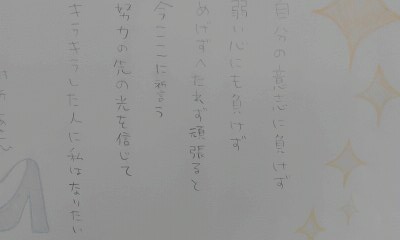 自分の意志に負けず
弱い心にも負けず
めげずへたれず頑張ると
今ここに誓う
努力の先の光を信じて
キラキラした人に私はなりたい